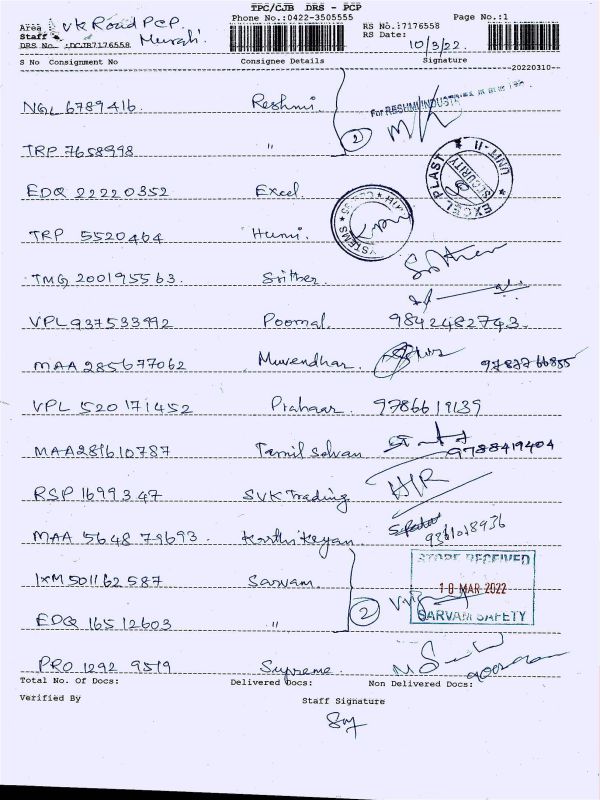 TPC/CJB DRS - PCP
Phone No.:0422-3505555 Page No.:1
Area : VK Road PCP.
Staff : Murali.
DRS No. :DCJB7176558
RS No.:7176558
RS Date: 10/3/22.
S No Consignment No Consignee Details Signature
--20220310--
NGL 6789416. Reshmi.
For RESHMI INDUSTR
2
TRP 7658998 "
EDQ 22220352 Excel.
EXCEL PLAST UNIT-II SECURITY
TRP 5520464 Humi.
TMG 200195563. Srither. Srither
VPL 937533992 Poomal. 9842482743.
MAA 285677062 Muvendhar. 9787766855
VPL 520171452 Prahaar. 9786619139
MAA281610787 Tamil Selvan 9788419404
RSP 1699347 SVK Trading
MAA 5648 79693. Karthikeyan 9361018936
IXM 501162587 Sarvam.
STORE RECEIVED
10 MAR 2022
SARVAM SAFETY
2
EDQ 16512603 "
PRO 1292 9519 Supreme.
Total No. Of Docs: Delivered Docs: Non Delivered Docs:
Verified By Staff Signature